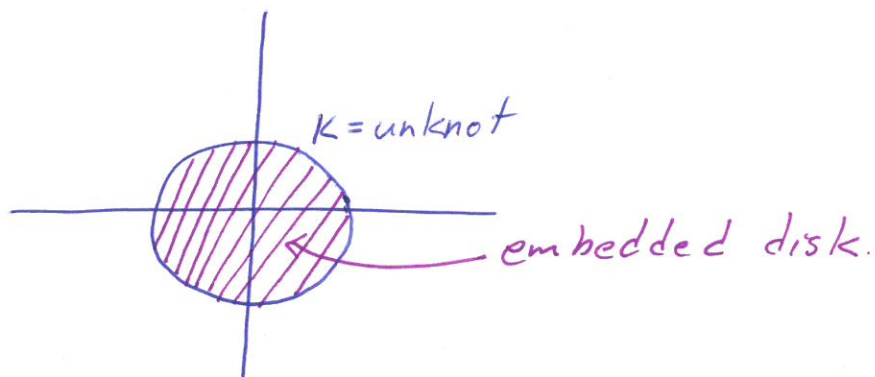 K = unknot
embedded disk.